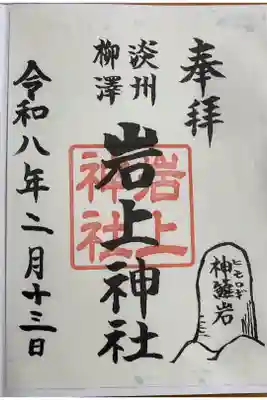 奉拝
淡州
柳澤
岩上神社
岩上
神社
ヒモロギ
神籬岩
令和八年二月十三日